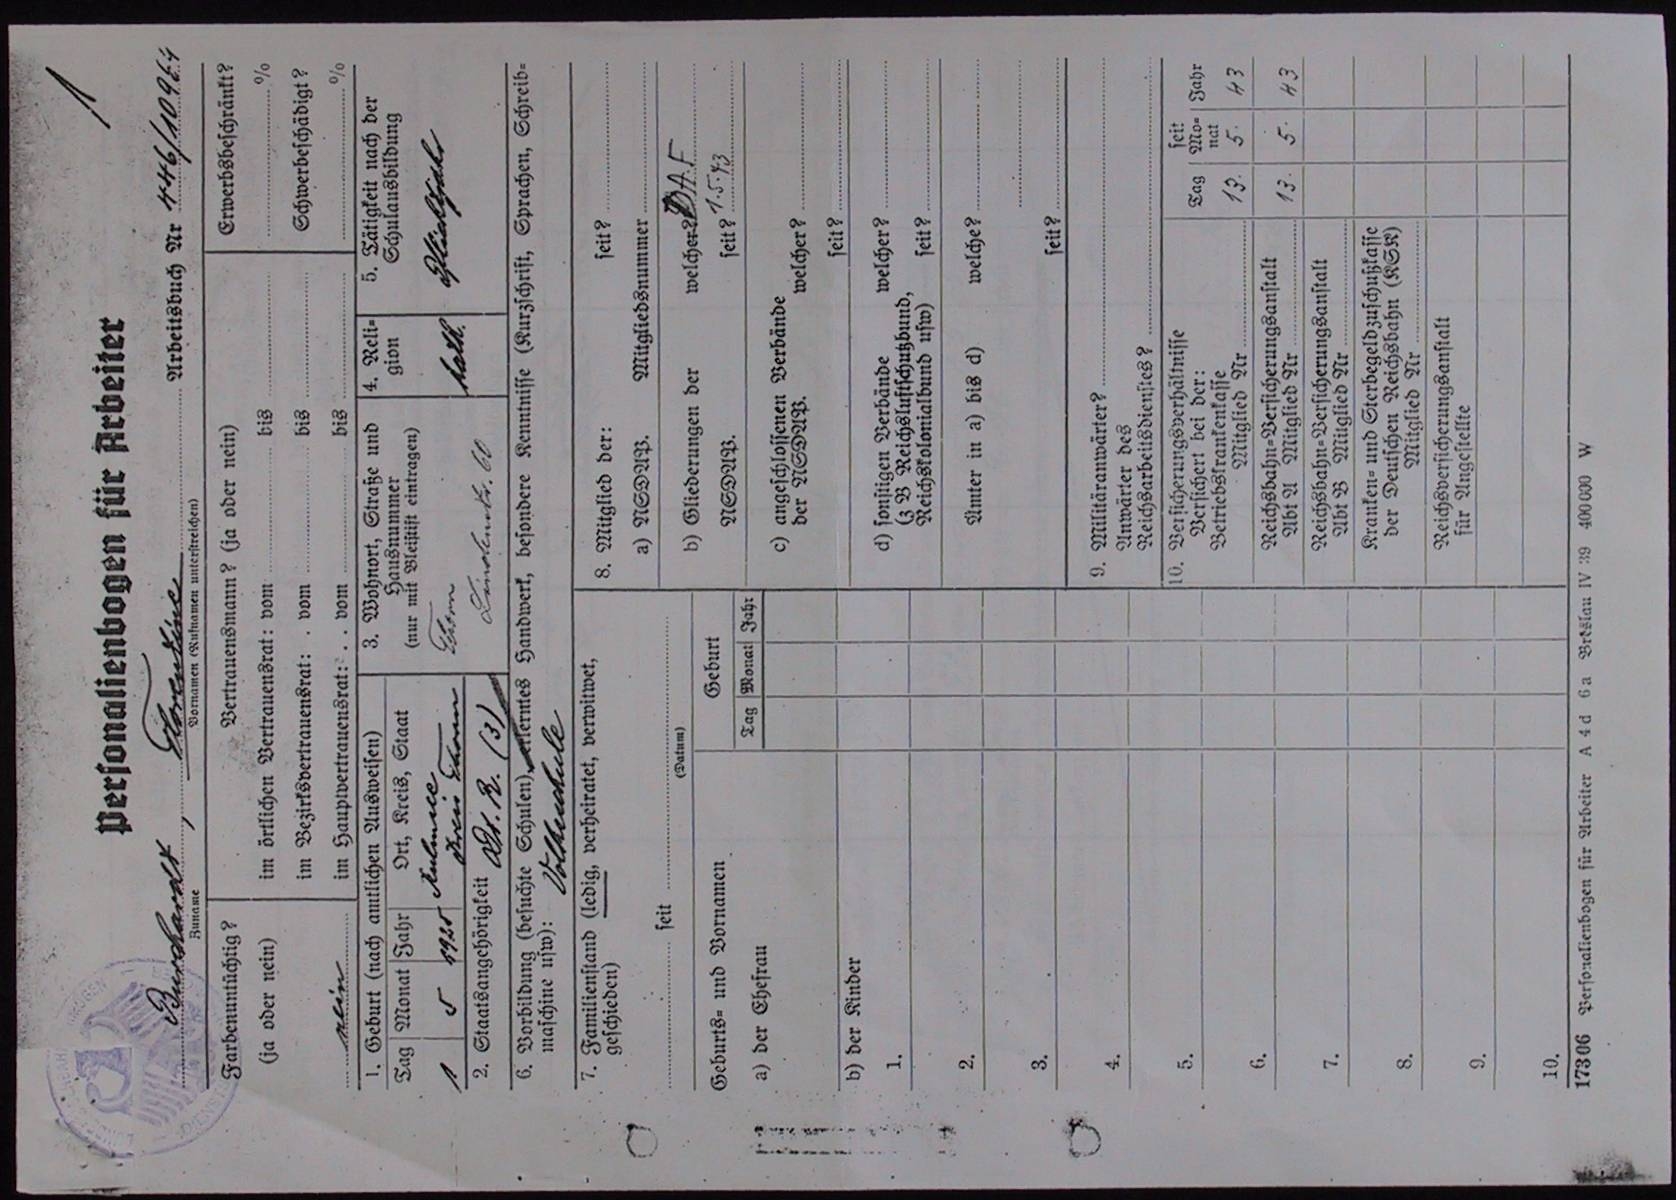 1
Personalienbogen für Arbeiter
Burchardt, Florentine Arbeitsbuch Nr 446/10964
Zuname Vornamen (Rufnamen unterstreichen)
Farbenuntüchtig?
(ja oder nein)
nein
Vertrauensmann? (ja oder nein)
im örtlichen Vertrauensrat: vom bis
im Bezirksvertrauensrat: . vom bis
im Hauptvertrauensrat: . . vom bis
Erwerbsbeschränkt?
%
Schwerbeschädigt?
%
1. Geburt (nach amtlichen Ausweisen)
Tag Monat Jahr Ort, Kreis, Staat
1 5 1925 Kulmsee
Kreis Thorn
2. Staatsangehörigkeit Dt. R. (3)
3. Wohnort, Straße und
Hausnummer
(nur mit Bleistift eintragen)
Thorn
Lindenstr. 60
4. Reli=
gion
kath.
5. Tätigkeit nach der
Schulausbildung
6. Vorbildung (besuchte Schulen), erlerntes Handwerk, besondere Kenntnisse (Kurzschrift, Sprachen, Schreib=
maschine usw): Volksschule
7. Familienstand (ledig, verheiratet, verwitwet,
geschieden)
seit
(Datum)
Geburts= und Vornamen
Geburt
Tag Monat Jahr
a) der Ehefrau
b) der Kinder
1.
2.
3.
4.
5.
6.
7.
8.
9.
10.
8. Mitglied der: seit?
a) NSDAP. Mitgliedsnummer
b) Gliederungen der welcher? DAF
NSDAP. seit? 1.5.43
c) angeschlossenen Verbände
der NSDAP. welcher?
seit?
d) sonstigen Verbände welcher?
(z B Reichsluftschutzbund,
Reichskolonialbund usw) seit?
Ämter in a) bis d) welche?
seit?
9. Militäranwärter?
Anwärter des
Reichsarbeitsdienstes?
10. Versicherungsverhältnisse
Versichert bei der:
seit
Tag Mo=
nat Jahr
Betriebskrankenkasse
Mitglied Nr 13. 5. 43
Reichsbahn=Versicherungsanstalt
Abt A Mitglied Nr 13. 5. 43
Reichsbahn=Versicherungsanstalt
Abt B Mitglied Nr
Kranken= und Sterbegeldzuschußkasse
der Deutschen Reichsbahn (KSK)
Mitglied Nr
Reichsversicherungsanstalt
für Angestellte
173 06 Personalienbogen für Arbeiter A 4 d 6 a Breslau IV 39 400 000 W